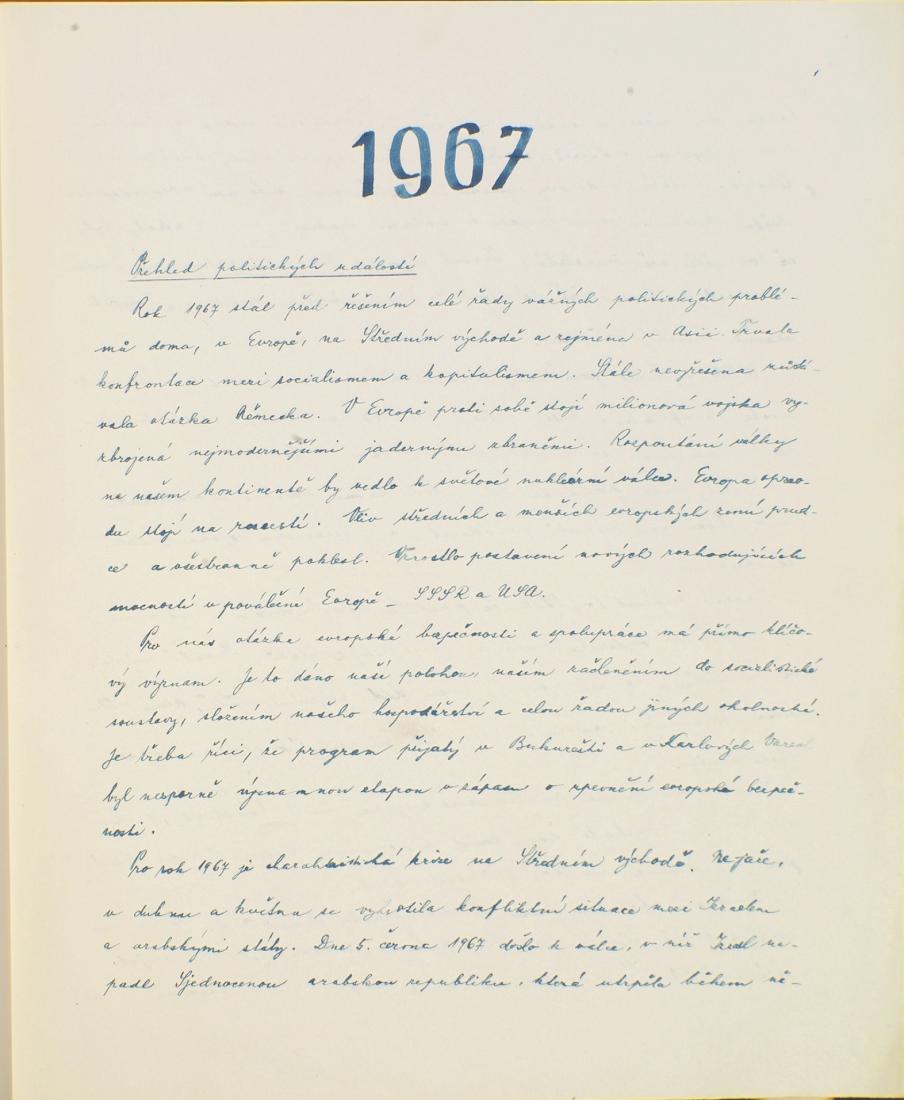 1967
Přehled politických událostí
Rok 1967 stál před řešením celé řady vážných politických problé-
mů doma, v Evropě, na Středním východě a zejména v Asii. Trvala
konfrontace mezi socialismem a kapitalismem. Stále nevyřešena zůstá-
vala otázka Německa. V Evropě proti sobě stojí milionová vojska vy-
zbrojená nejmodernějšími jadernými zbraněmi. Rozpoutání války
na našem kontinentě by vedlo k světové nukleární válce. Evropa oprav-
du stojí na rozcestí. Vliv středních a menších evropských zemí prud-
ce a všestranně poklesl. Vzrostlo postavení nových rozhodujících
mocností v poválečné Evropě - SSSR a USA.
Pro nás otázka evropské bezpečnosti a spolupráce má přímo klíčo-
vý význam. Je to dáno naší polohou, naším začleněním do socialistické
soustavy, složením našeho hospodářství a celou řadou jiných okolností.
Je třeba říci, že program přijatý v Bukurešti a v Karlových Varech
byl nesporně významnou etapou v zápasu o zpevnění evropské bezpeč-
nosti.
Pro rok 1967 je charakteristická krize na Středním východě. Na jaře,
v dubnu a květnu se vyhrotila konfliktní situace mezi Izraelem
a arabskými státy. Dne 5. června 1967 došlo k válce, v níž Izrael na-
padl Sjednocenou arabskou republiku, která utrpěla během ně-